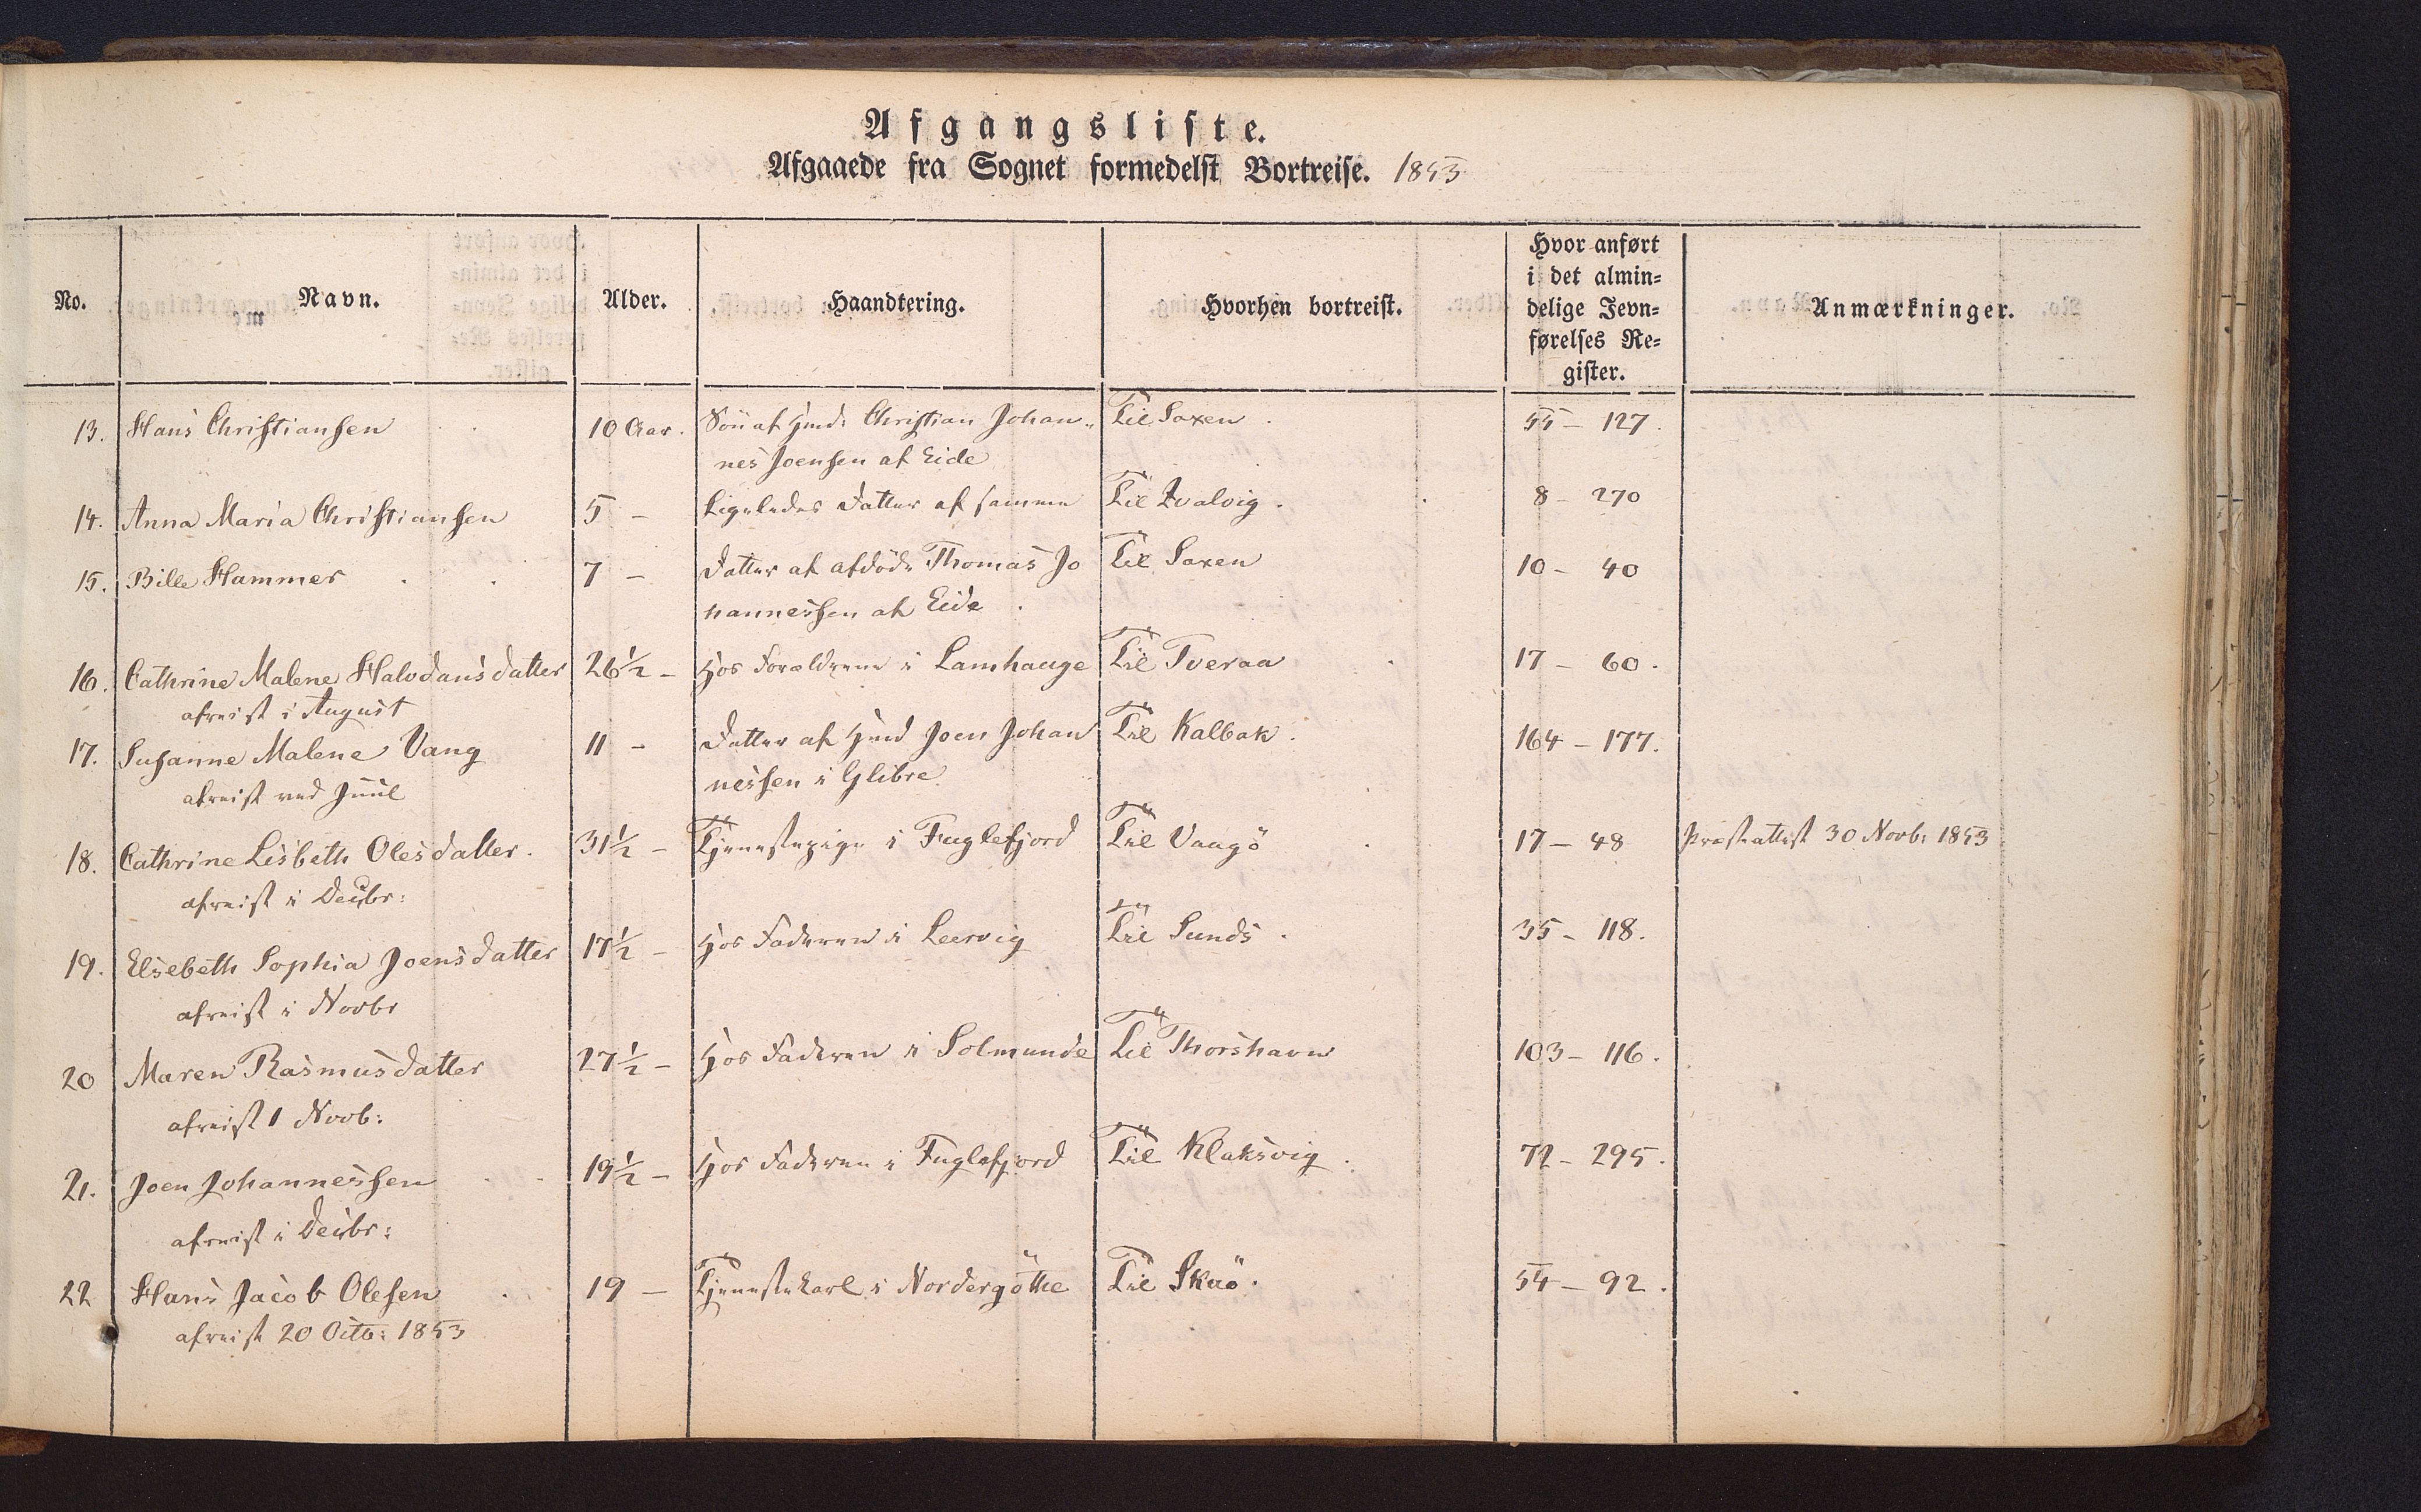 Afgangsliste.
Afgaaede fra Sognet formedelst Bortreise. 1853
No. Navn. Alder. Haandtering. Hvorhen bortreist. Hvor anført i det almin= delige Jevn= førelses Re= gister. Anmærkninger.
13. Hans Christiansen 10 Aar. Sön af Hmd: Christian Johan„ Til Saxen. 55 – 127.
nes Joensen af Eide
14. Anna Maria Christiansen 5 – Ligeledes Datter af samme Til Qvalvig. 8 – 270
15. Bille Hammer 7 – Datter af afdöde Thomas Jo Til Saxen 10 – 40
hannessen af Eide.
16. Cathrine Malene Halvdansdatter 26½ – Hos Forældrene i Lamhauge Til Tveraa 17 – 60.
afreist i August
17. Susanne Malene Vang 11 – Datter af Hmd Joen Johan Til Kalbak. 164 – 177.
nessen i Glibre
afreist ved Juul
18. Cathrine Lisbeth Olesdatter. 31½ – Tjenestepige i Fuglefjord Til Vaagö 17 – 48 Præsteattest 30 Novb: 1853
afreist i Decbr:
19. Elsebeth Sophia Joensdatter 17½ – Hos Faderen i Leervig Til Sunds. 35 – 118.
afreist i Novbr
20 Maren Rasmusdatter 27½ – Hos Faderen i Solmunde Til Thorshavn 103 – 116.
afreist 1 Novb:
21. Joen Johannessen 19½ – Hos Faderen i Fuglefjord Til Klaksvig. 72 – 295.
afreist i Decbr:
22 Hans Jacob Olesen 19 – Tjenestekarl i Nordergöthe Til Skuö. 54 – 92.
afreist 20 Octb: 1853